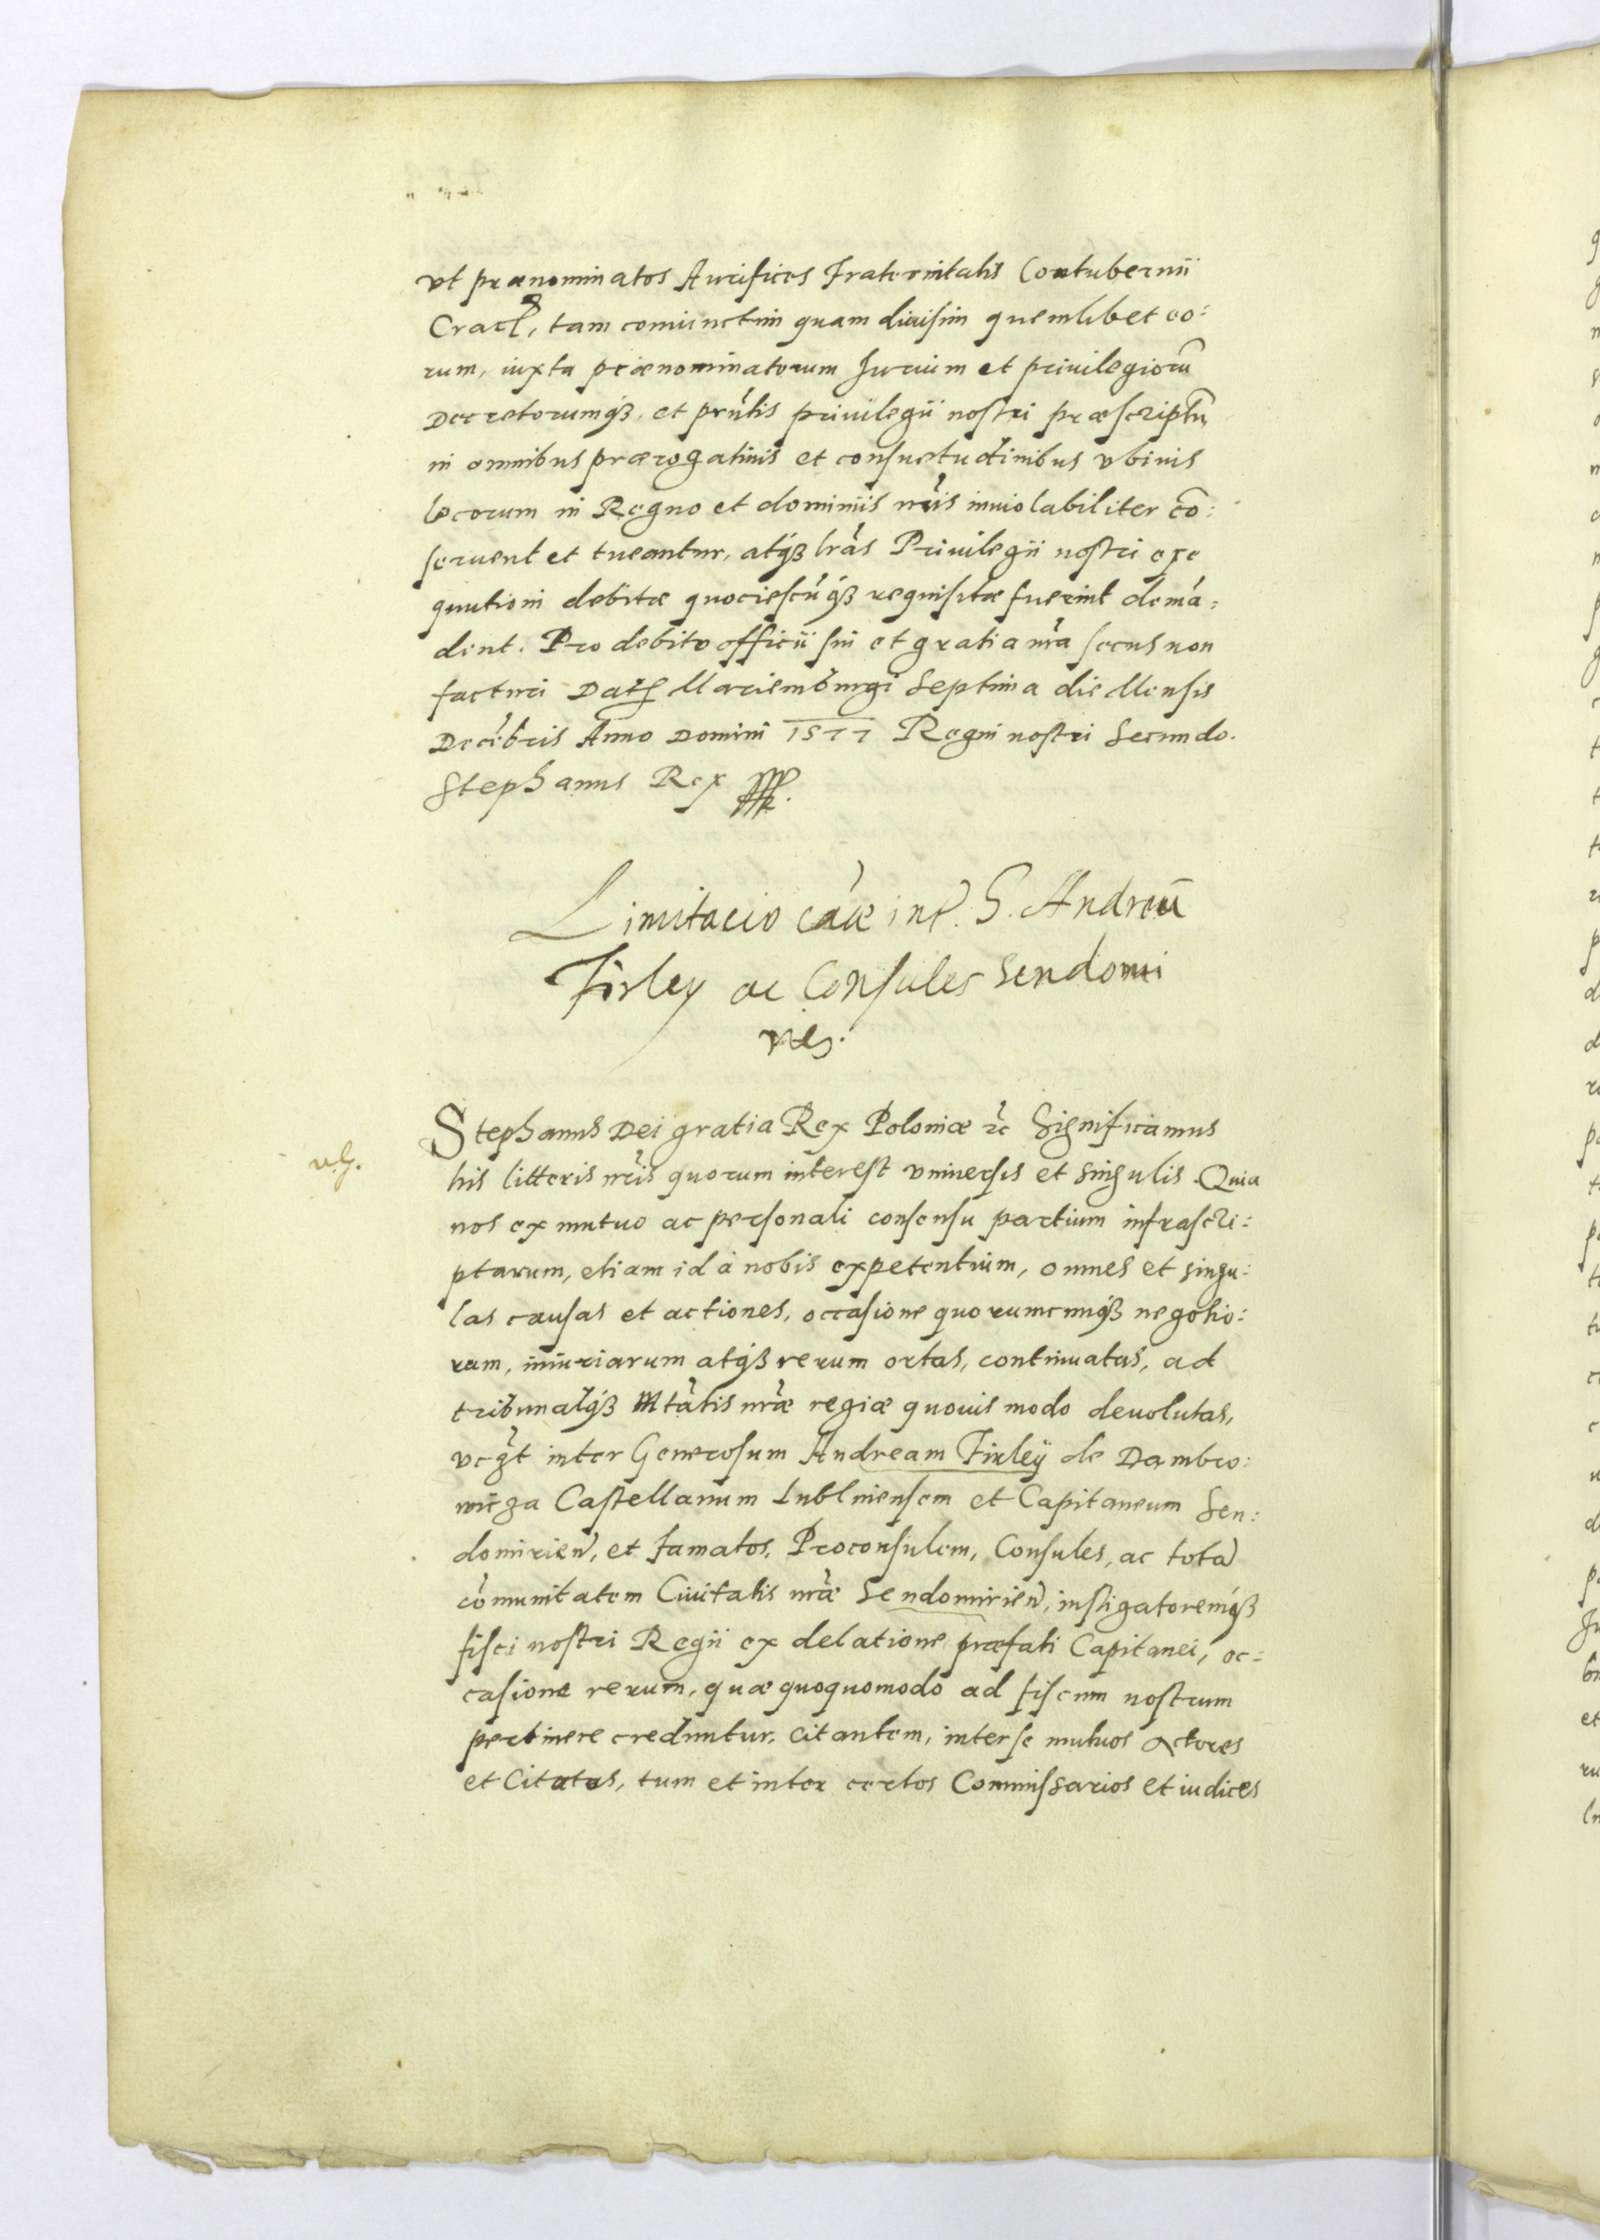 vt prænominatos Aurifices Fraternitatis Contubernii
Crac, tam coniunctim quam diuisim quemlibet eo:
rum, iuxta prænominatorum Jurium et priuilegiorū
Decretorumqȝ et prńtis priuilegii nostri præscriptū
in omnibus prærogatiuis et consuetudinibus vbiuis
locorum in Regno et dominiis nr̃is inuiolabiliter cō:
seruent et tueantur, atqȝ lr̃as Priuilegii nostri exe
quutioni debitæ quociescūqȝ requisitæ fuerint demā:
dent. Pro debito officii sui et gratia nr̃a secus non
facturi Dat Mariemburgi Septima die Mensis
Decēbris Anno Domini 1577 Regni nostri Secundo.
Stephanus Rex
Limitacio cāæ int. G. Andreā
Firley ac Consules Sendomi
rien.
Stephanus Dei gratia Rex Poloniæ ꝛc Significamus
his litteris nr̃is quorum interest vniuersis et singulis. Quia
nos ex mutuo ac personali consensu partium infrascri:
ptarum, etiam id à nobis expetentium, omnes et singu:
las causas et actiones, occasione quorumcunqȝ negotio:
rum, iniuriarum atqȝ rerum ortas, continuatas, ad
tribunalqȝ Mtātis nr̃æ regiæ quouis modo deuolutas,
vꝫt inter Generosum Andream Firleÿ de Dambro:
wicza Castellanum Lublinensem et Capitaneum Sen:
domirien̄, et famatos, Proconsulem, Consules, ac totā
cōmunitatem Ciuitatis nr̃æ Sendomirien̄, instigatoremqȝ
fisci nostri Regii ex delatione præfati Capitanei, oc:
casione rerum, quæ quoquomodo ad fiscum nostrum
pertinere creduntur, citantem, inter se mutuos Actores
et Citatos, tum et inter certos Commissarios et iudices